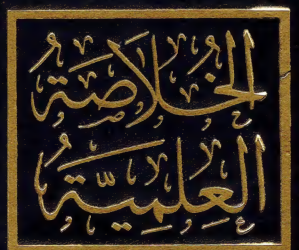 الخُلاصَةُ
العِلميَّةُ